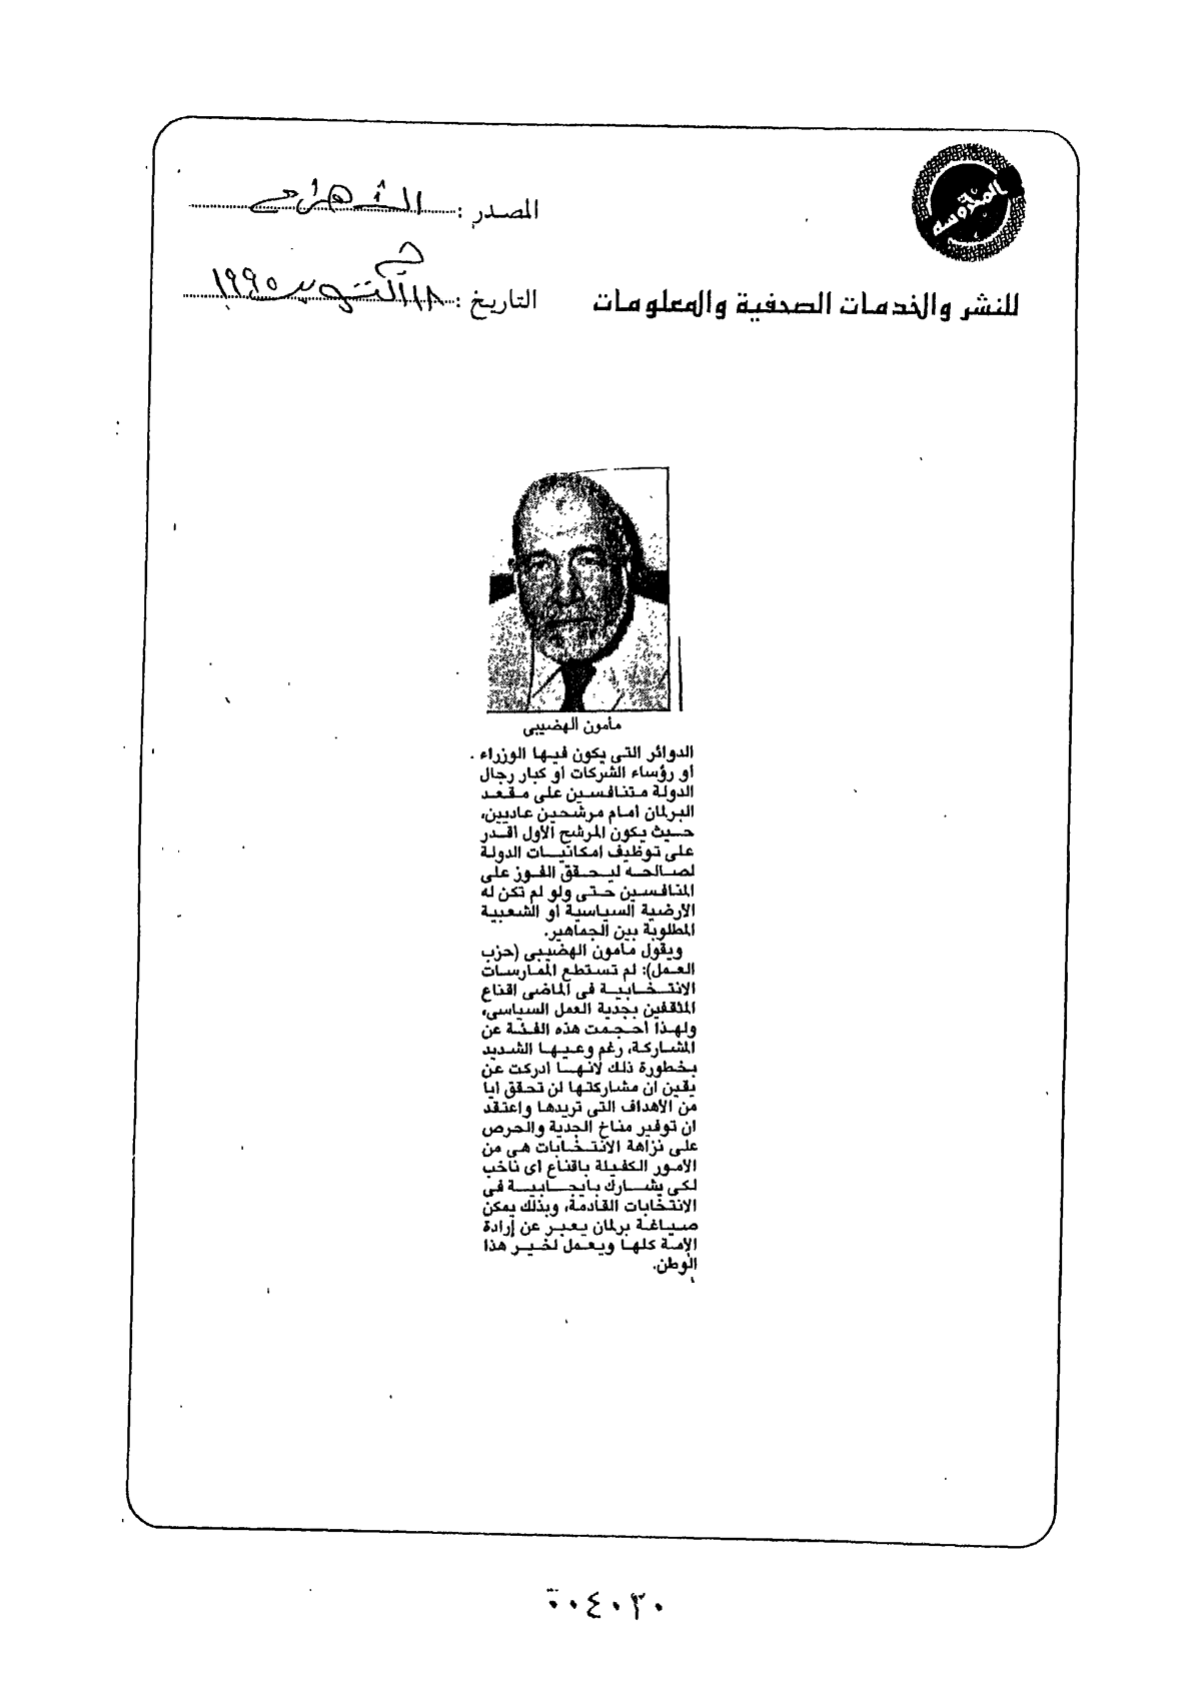 المحروسة
المصدر :
للنشر والخدمات الصحفية والمعلومات
التاريخ : ١٨ أكتوبر ١٩٩٥
مأمون الهضيبى
الدوائر التى يكون فيها الوزراء
أو رؤساء الشركات أو كبار رجال
الدولة متنافسين على مقعد
البرلمان أمام مرشحين عاديين،
حيث يكون المرشح الأول أقدر
على توظيف امكانيات الدولة
لصالحه ليحقق الفوز على
المنافسين حتى ولو لم تكن له
الأرضية السياسية أو الشعبية
المطلوبة بين الجماهير.
ويقول مأمون الهضيبى (حزب
العمل): لم تستطع الممارسات
الانتخابية فى الماضى اقناع
المثقفين بجدية العمل السياسى،
ولهذا احجمت هذه الفئة عن
المشاركة، رغم وعيها الشديد
بخطورة ذلك لانها ادركت عن
يقين ان مشاركتها لن تحقق ايا
من الأهداف التى تريدها واعتقد
ان توفير مناخ الجدية والحرص
على نزاهة الانتخابات هى من
الأمور الكفيلة باقناع اى ناخب
لكى يشارك بايجابية فى
الانتخابات القادمة، وبذلك يمكن
صياغة برلمان يعبر عن إرادة
الأمة كلها ويعمل لخير هذا
الوطن.